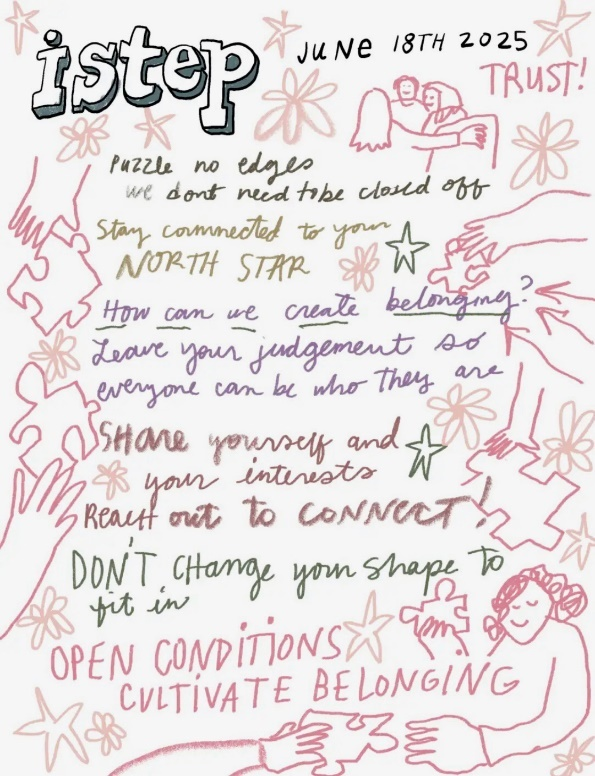 istep
JUNE 18TH 2025
TRUST!
Puzzle no edges
we dont need to be closed off
Stay connected to your
NORTH STAR
How can we create belonging?
Leave your judgement so
everyone can be who they are
SHare yourself and
your interests
ReacH out to CONNECT!
DON'T CHange your shape to
fit in
OPEN CONDITIONS
CULTIVATE BELONGING